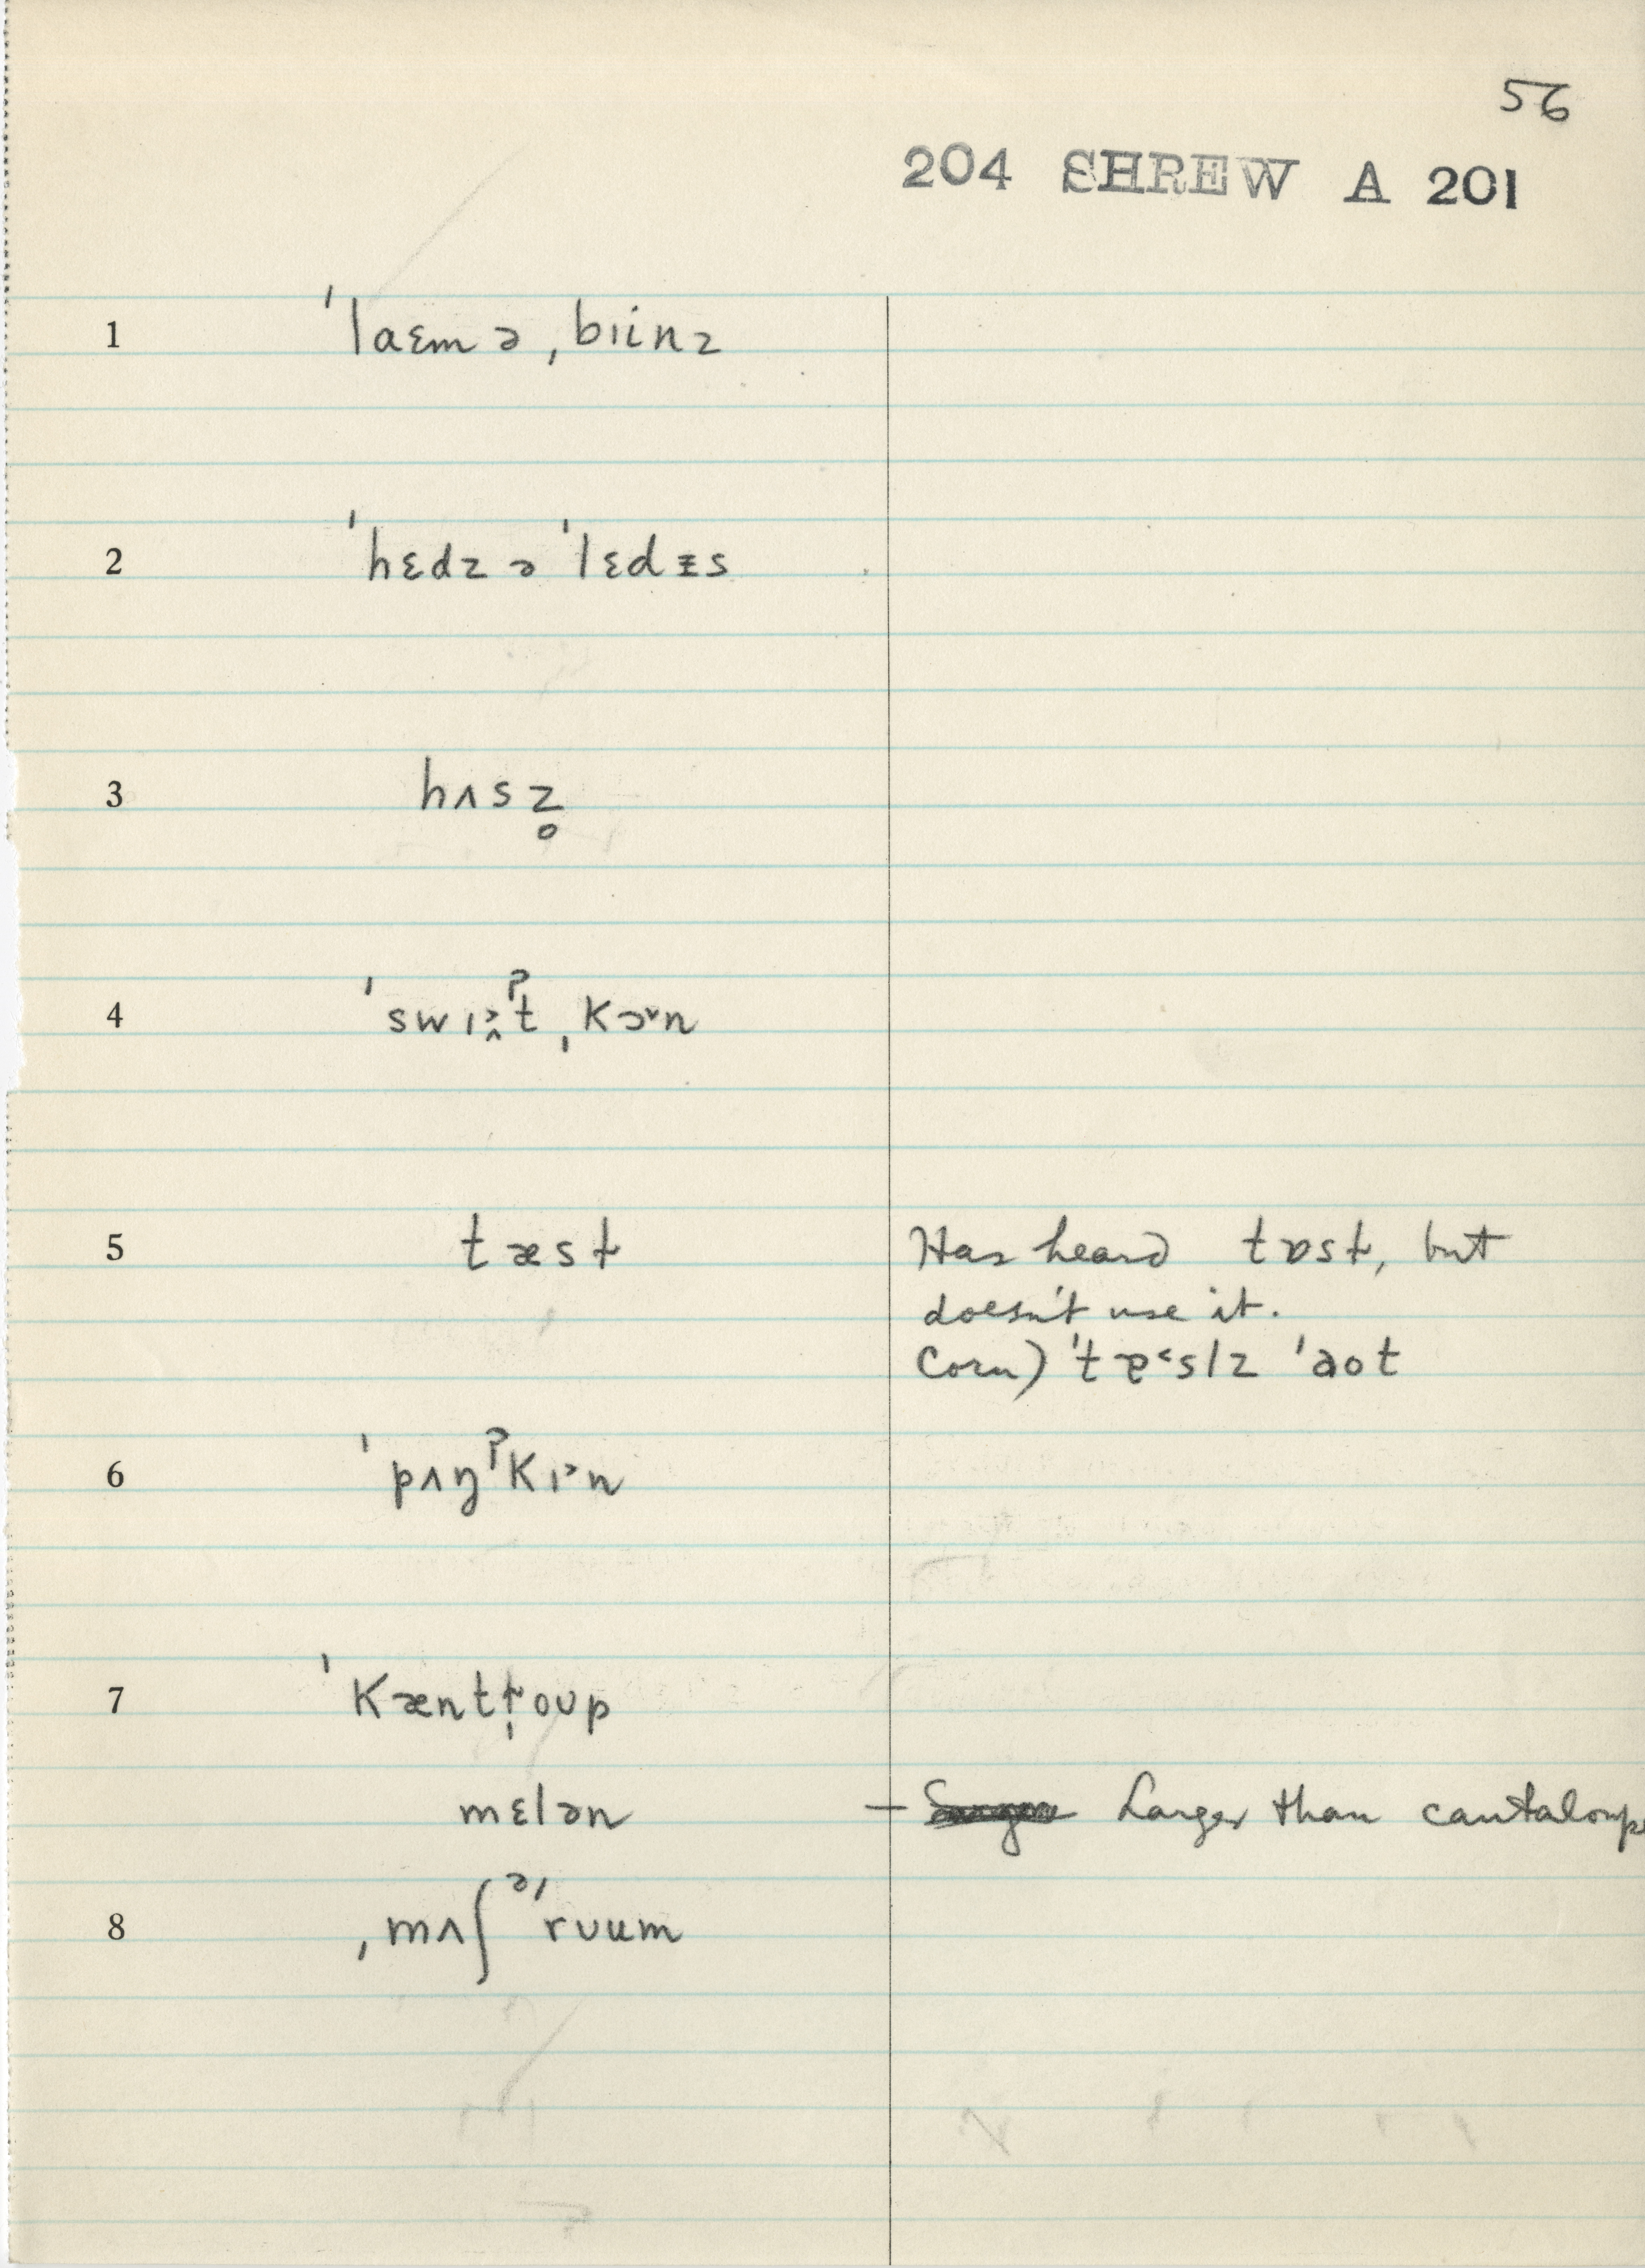 56
204 SHREW A 201
1 ˈlaɛmə ˌbɪinz
2 ˈhɛdz ə ˈlɛdᵻs
3 hʌsz̥
4 ˈswɪi̭˃ˀt ˌkɔ˅n
5 tæsɫ Has heard tɒsɫ, but
doesn't use it.
Corn) ˈtɐ˂slz ˈəot
6 ˈpʌŋˀkɪ˃n
7 ˈkæntɫ̩oup
mɛlən – Larger than cantaloupe
8 ˌmʌʃᵊˈrʊum